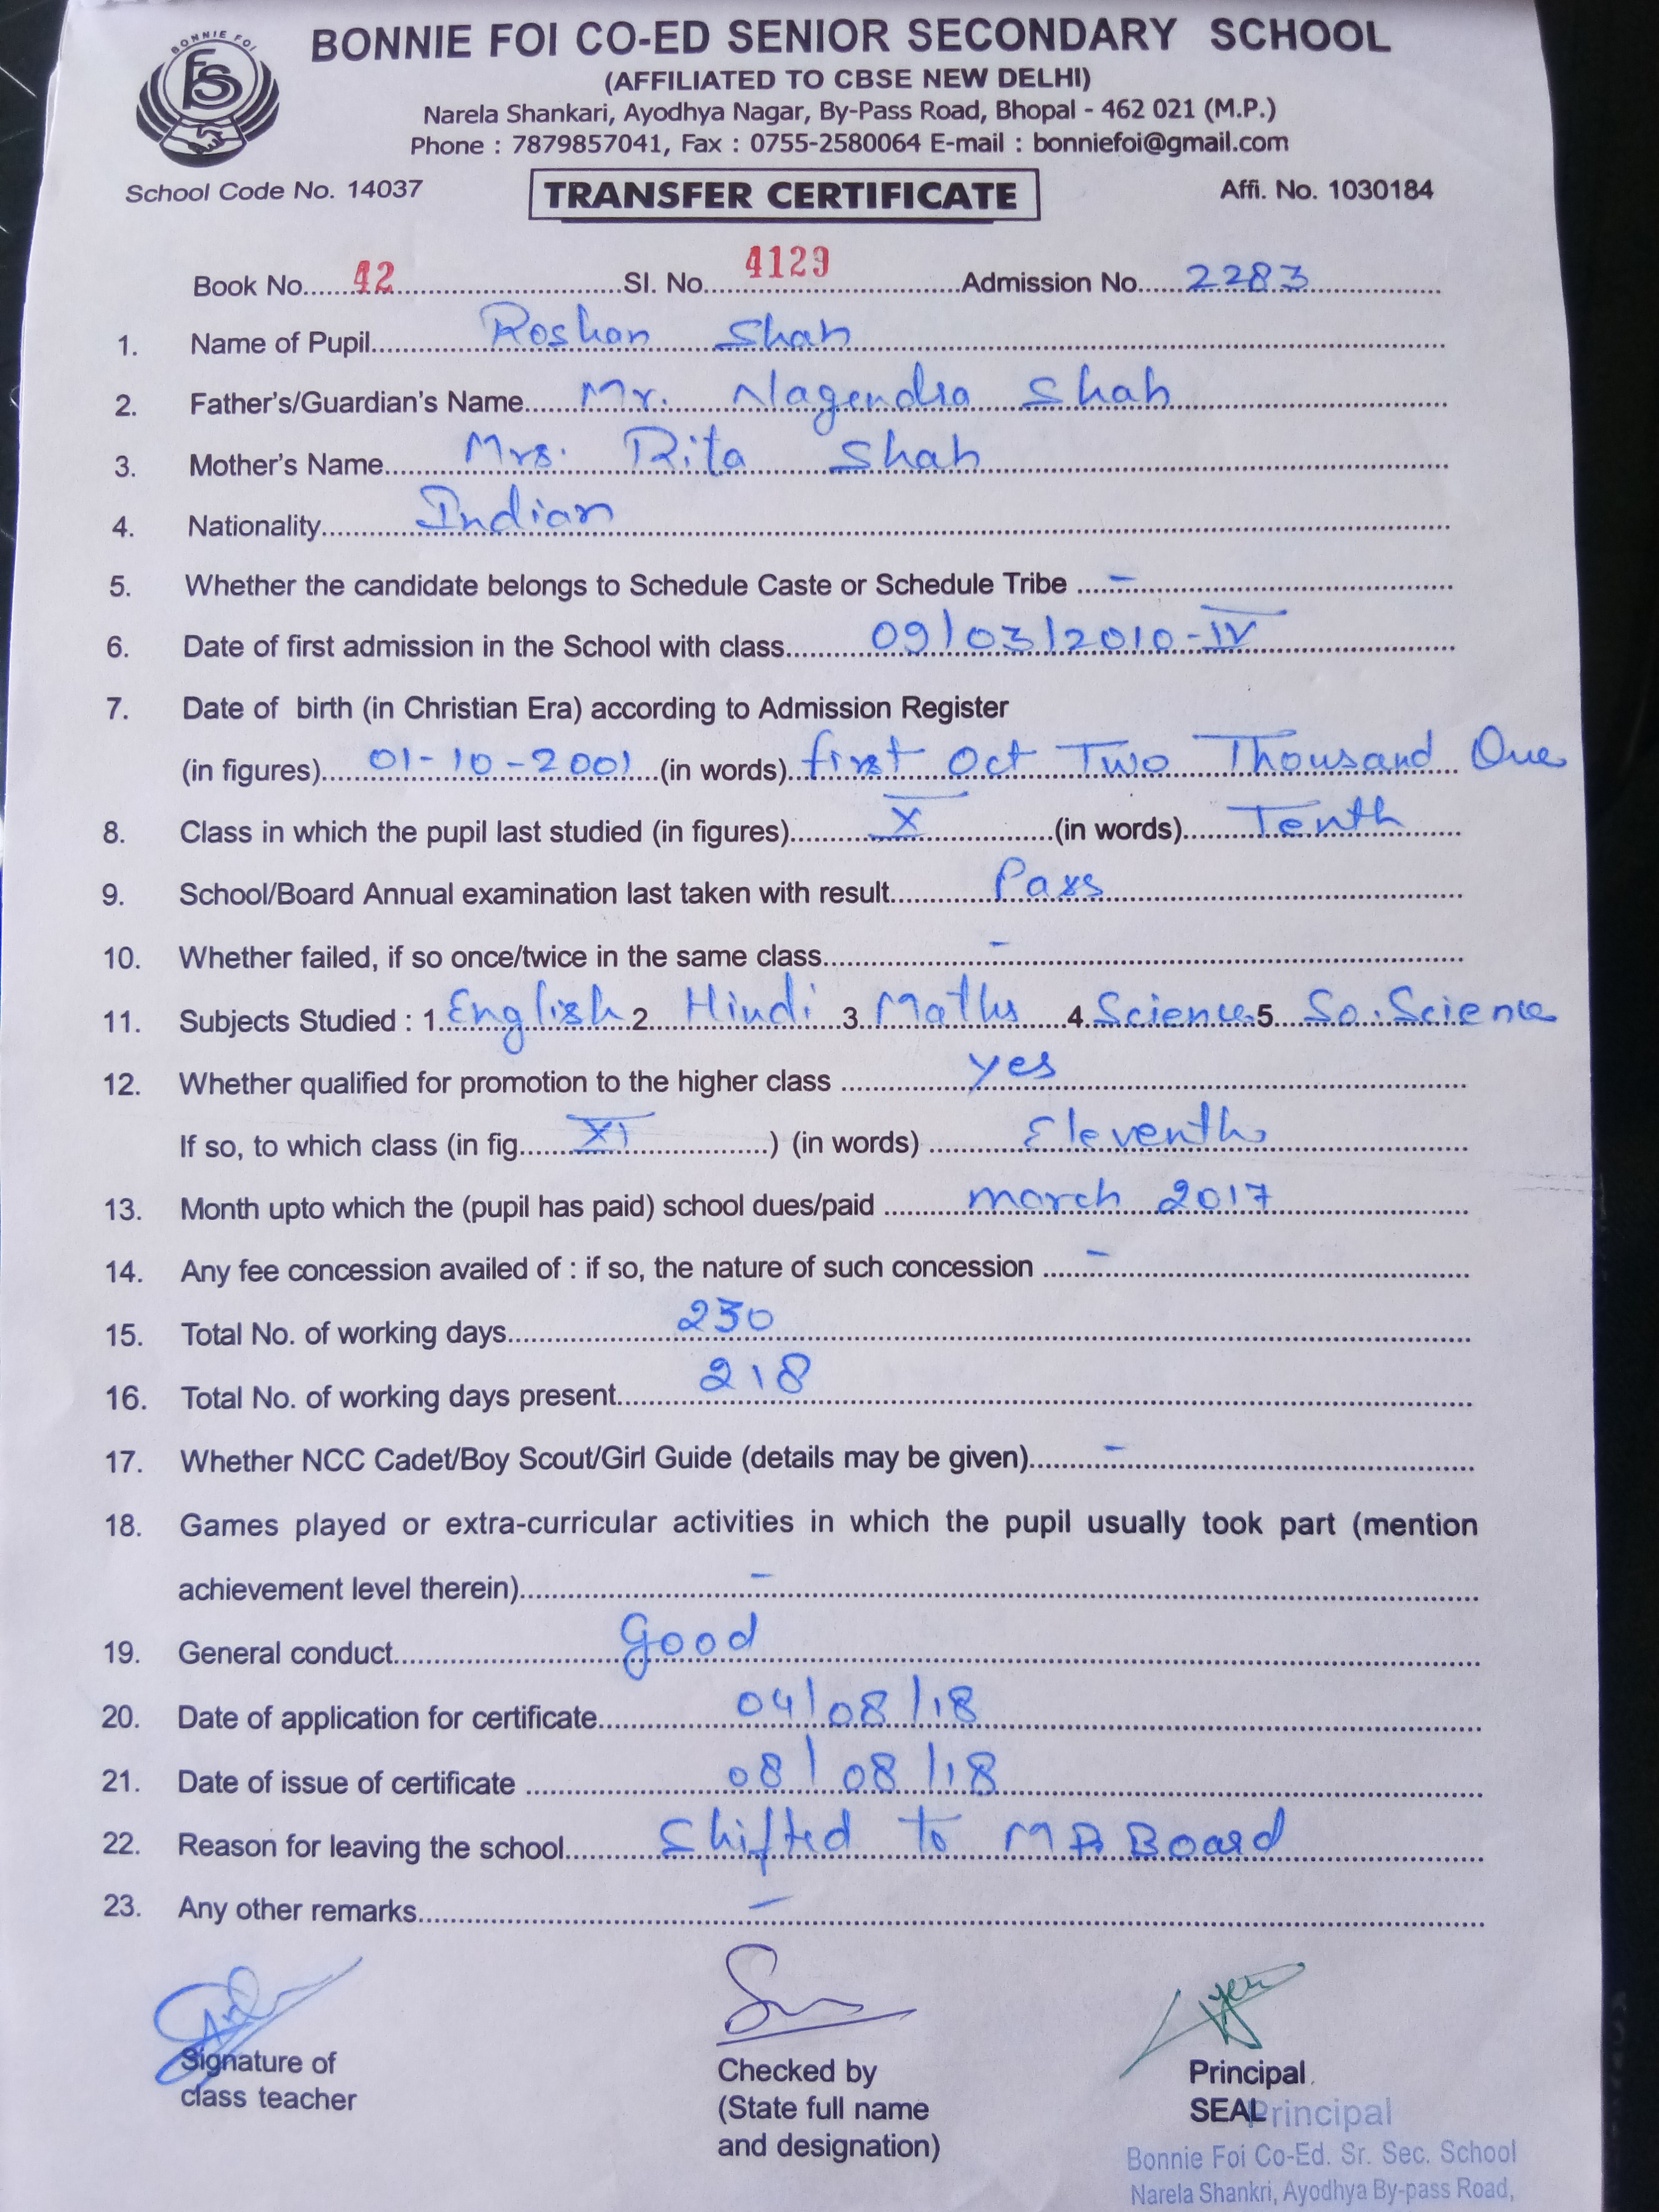 BONNIE FOI
FS
BONNIE FOI CO-ED SENIOR SECONDARY SCHOOL
(AFFILIATED TO CBSE NEW DELHI)
Narela Shankari, Ayodhya Nagar, By-Pass Road, Bhopal - 462 021 (M.P.)
Phone : 7879857041, Fax : 0755-2580064 E-mail : bonniefoi@gmail.com
School Code No. 14037 TRANSFER CERTIFICATE Affi. No. 1030184
Book No. 42 Sl. No. 4129 Admission No. 2283
1. Name of Pupil Roshan Shah
2. Father's/Guardian's Name Mr. Nagendra Shah
3. Mother's Name Mrs. Rita Shah
4. Nationality Indian
5. Whether the candidate belongs to Schedule Caste or Schedule Tribe -
6. Date of first admission in the School with class 09/03/2010-IV
7. Date of birth (in Christian Era) according to Admission Register
(in figures) 01-10-2001 (in words) first Oct Two Thousand One
8. Class in which the pupil last studied (in figures) X (in words) Tenth
9. School/Board Annual examination last taken with result Pass
10. Whether failed, if so once/twice in the same class -
11. Subjects Studied : 1. English 2. Hindi 3. Maths 4. Science 5. So. Science
12. Whether qualified for promotion to the higher class yes
If so, to which class (in fig. XI ) (in words) Eleventh
13. Month upto which the (pupil has paid) school dues/paid march 2017
14. Any fee concession availed of : if so, the nature of such concession -
15. Total No. of working days 230
16. Total No. of working days present 218
17. Whether NCC Cadet/Boy Scout/Girl Guide (details may be given) -
18. Games played or extra-curricular activities in which the pupil usually took part (mention
achievement level therein) -
19. General conduct Good
20. Date of application for certificate 04/08/18
21. Date of issue of certificate 08/08/18
22. Reason for leaving the school Shifted to MP Board
23. Any other remarks -
Signature of
class teacher
Checked by
(State full name
and designation)
Principal
SEAL
Principal
Bonnie Foi Co-Ed. Sr. Sec. School
Narela Shankri, Ayodhya By-pass Road,